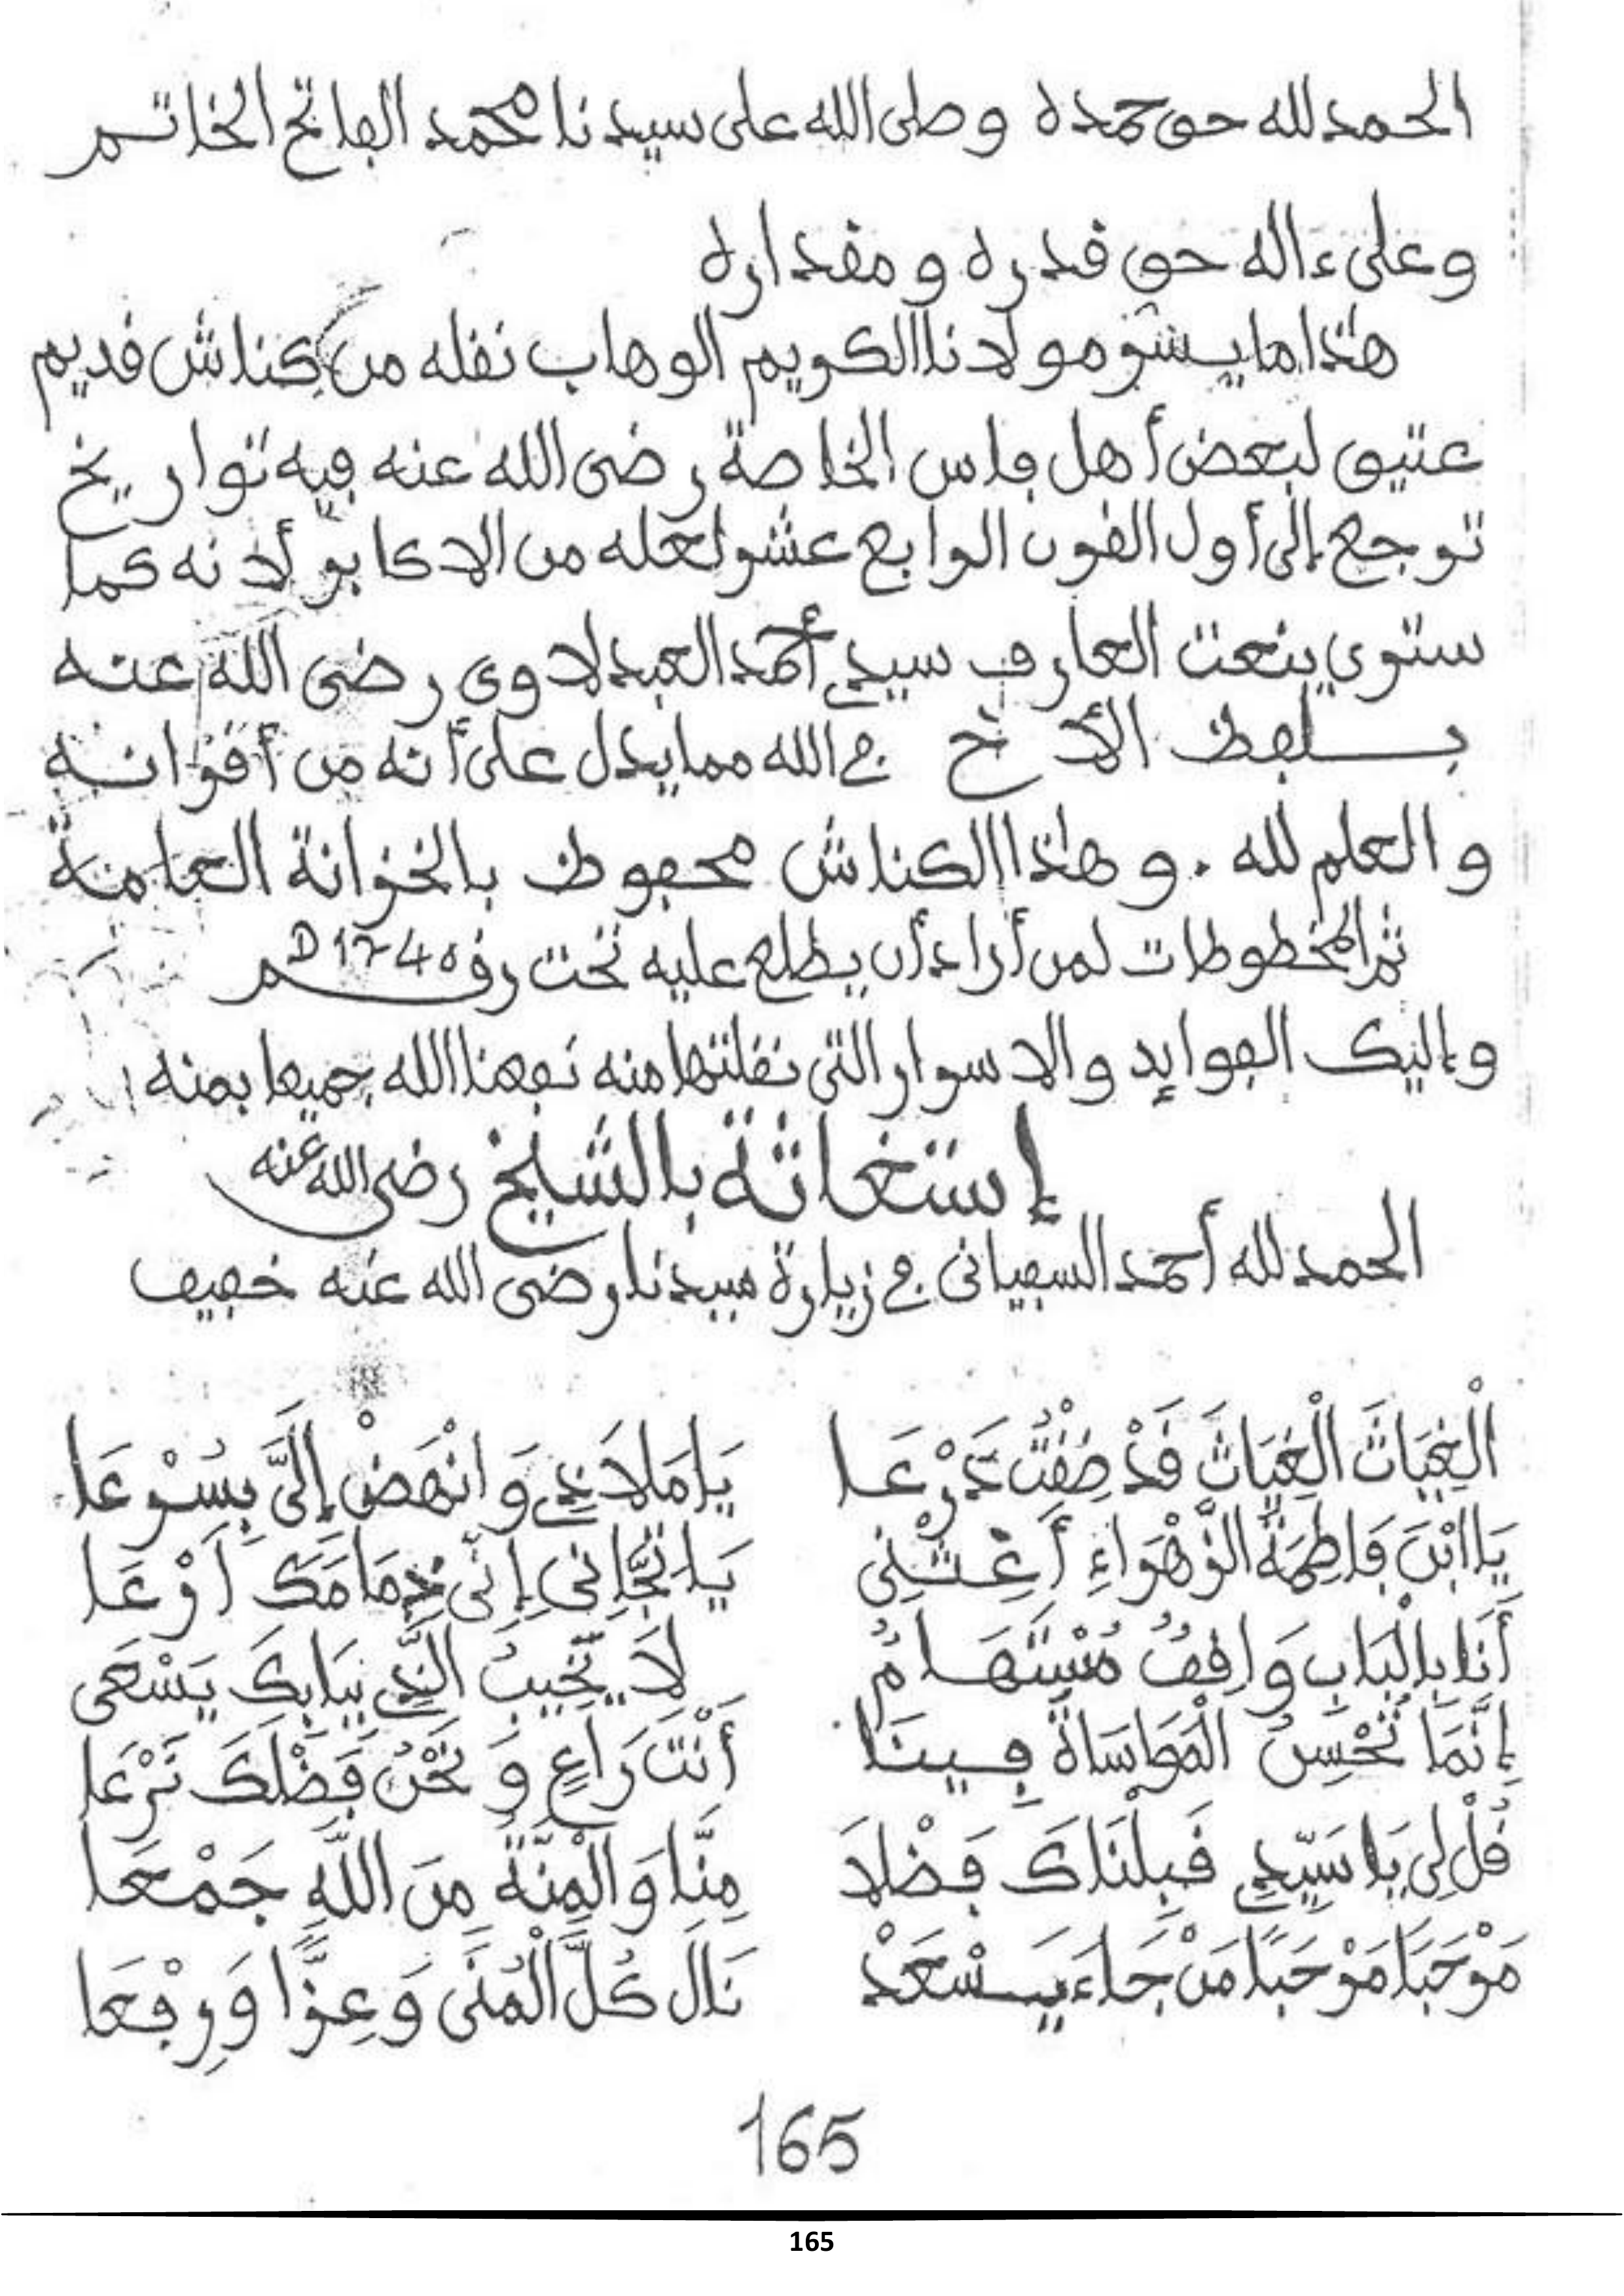 الحمد لله حق حمده وصلى الله على سيدنا محمد الفاتح الخاتم
وعلى ءاله حق قدره ومقداره
هذا ما يسر مولانا الكريم الوهاب نقله من كناش قديم
عتيق لبعض أهل فاس الخاصة رضى الله عنه فيه تواريخ
ترجع إلى أول القرن الرابع عشر لعله من الاكابر لأنه كما
سترى ينعت العارف سيدي أحمد العبدلاوى رضى الله عنه
بلفظ الأخ في الله مما يدل على أنه من أقرانه
والعلم لله . وهذا الكناش محفوظ بالخزانة العامة
ثم المخطوطات لمن أراد أن يطلع عليه تحت رقم D 1740
وإليك الفوايد والاسرار التى نقلتها منه نفعنا الله جميعا بمنه
إستغاثة بالشيخ رضى الله عنه
الحمد لله أحمد السفيانى في زيارة سيدنا رضى الله عنه خفيف
الْغِيَاثَ الْغِيَاثَ قَدْ ضِقْتُ ذَرْعَا يَا مَلَاذِي وَانْهَضْ إِلَيَّ بِسُرْعَا
يَا ابْنَ فَاطِمَةَ الزَّهْرَاءِ أَغِثْنِى يَا تِجَانِى إِنِّى ذِمَامَكَ أَرْعَا
أَنَا بِالْبَابِ وَاقِفُ مُسْتَهَامُ لَا يَخِيبُ الَّذِي بِبَابِكَ يَسْعَى
إِنَّمَا تَحْسِنُ الْمَوَاسَاةُ فِينَا أَنْتَ رَاعٍ وَنَحْنُ فَضْلَكَ نَرْعَا
قُلْ لِى يَا سَيِّدِي قَبِلْنَاكَ فَضْلَا مِنَّا وَالْمِنَّةُ مِنَ اللَّهِ جَمْعَا
مَرْحَبًا مَرْحَبًا مَنْ جَاءَ يَسْعَدْ نَالَ كُلَّ الْمُنَى وَعِزًّا وَرِفْعَا
165
165